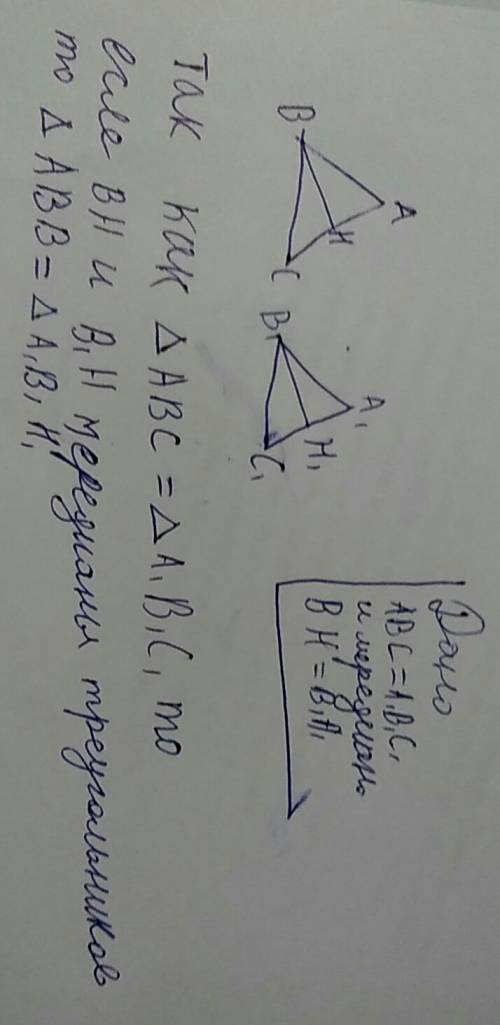 Дано
ABC = A₁B₁C₁
и меридианы
BH = B₁A₁
A
B
H
C
A₁
B₁
H₁
C₁
Так как Δ ABC = Δ A₁B₁C₁ то
если BH и B₁H меридианы треугольников
то Δ ABB = Δ A₁B₁H₁